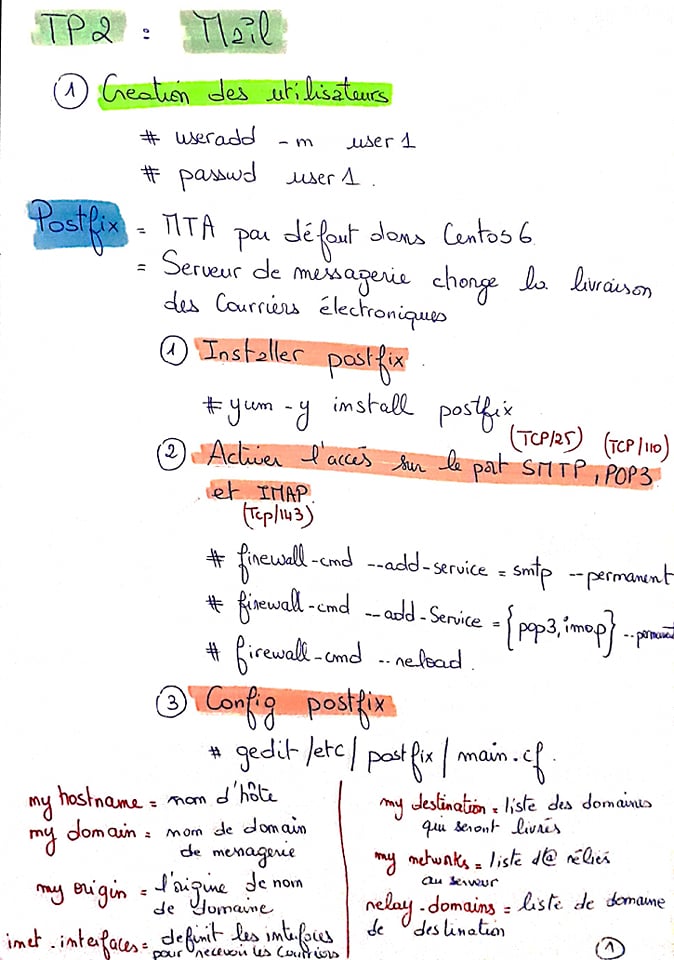 TP2 : Mail
① Creation des utilisateurs
# useradd -m user1
# passwd user1.
Postfix = MTA par défaut dans Centos6
= Serveur de messagerie charge la livraison
des Courriers électroniques
① Installer postfix
# yum -y install postfix
(TCP/25) (TCP/110)
② Activer l'accés sur le port SMTP, POP3
et IMAP
(Tcp/143)
# firewall-cmd --add-service = smtp --permanent
# firewall-cmd --add-Service = {pop3,imap} --permanent
# firewall-cmd --reload.
③ Config postfix
# gedit /etc/postfix/main.cf.
my hostname = nom d'hôte
my domain = nom de domain
de messagerie
my origin = l'origine de nom
de domaine
inet-interfaces = definit les interfaces
pour recevoir les Courriers
my destination = liste des domaines
qui seront livrés
my networks = liste d@ réliés
au serveur
relay-domains = liste de domaine
de destination
①